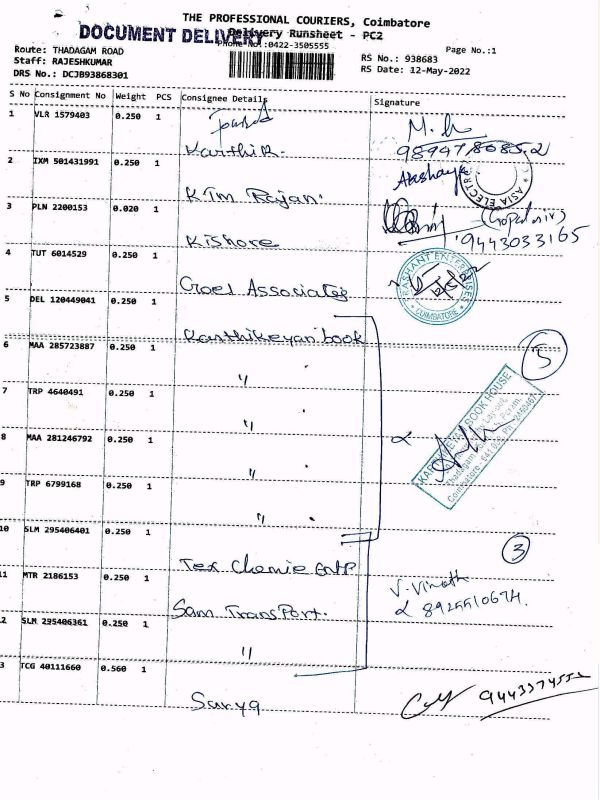 THE PROFESSIONAL COURIERS, Coimbatore
DOCUMENT DELIVERY
Delivery Runsheet - PC2
Phone No.:0422-3505555
Page No.:1
Route: THADAGAM ROAD
Staff: RAJESHKUMAR
DRS No.: DCJB93868301
RS No.: 938683
RS Date: 12-May-2022
S No Consignment No Weight PCS Consignee Details Signature
1 VLR 1579403 0.250 1
Karthik.
2 IXM 501431991 0.250 1 Akshaya
ASIA ELECTR
KTM Rajan.
3 PLN 2200153 0.020 1
Kishore
9443033165
4 TUT 6014529 0.250 1
PRASHANT ENTERPRISES
COIMBATORE
Goel Associates
5 DEL 120449041 0.250 1
Karthikeyan book
6 MAA 285723887 0.250 1
"
5
7 TRP 4640491 0.250 1
"
KARTHIKEYAN BOOK HOUSE
8 MAA 281246792 0.250 1
"
9 TRP 6799168 0.250 1
"
10 SLM 295406401 0.250 1
Tex Chemie Entp
3
11 MTR 2186153 0.250 1
V. Vinoth
8925510674.
Sam Transport.
2 SLM 295406361 0.250 1
"
3 TCG 40111660 0.560 1
Surya